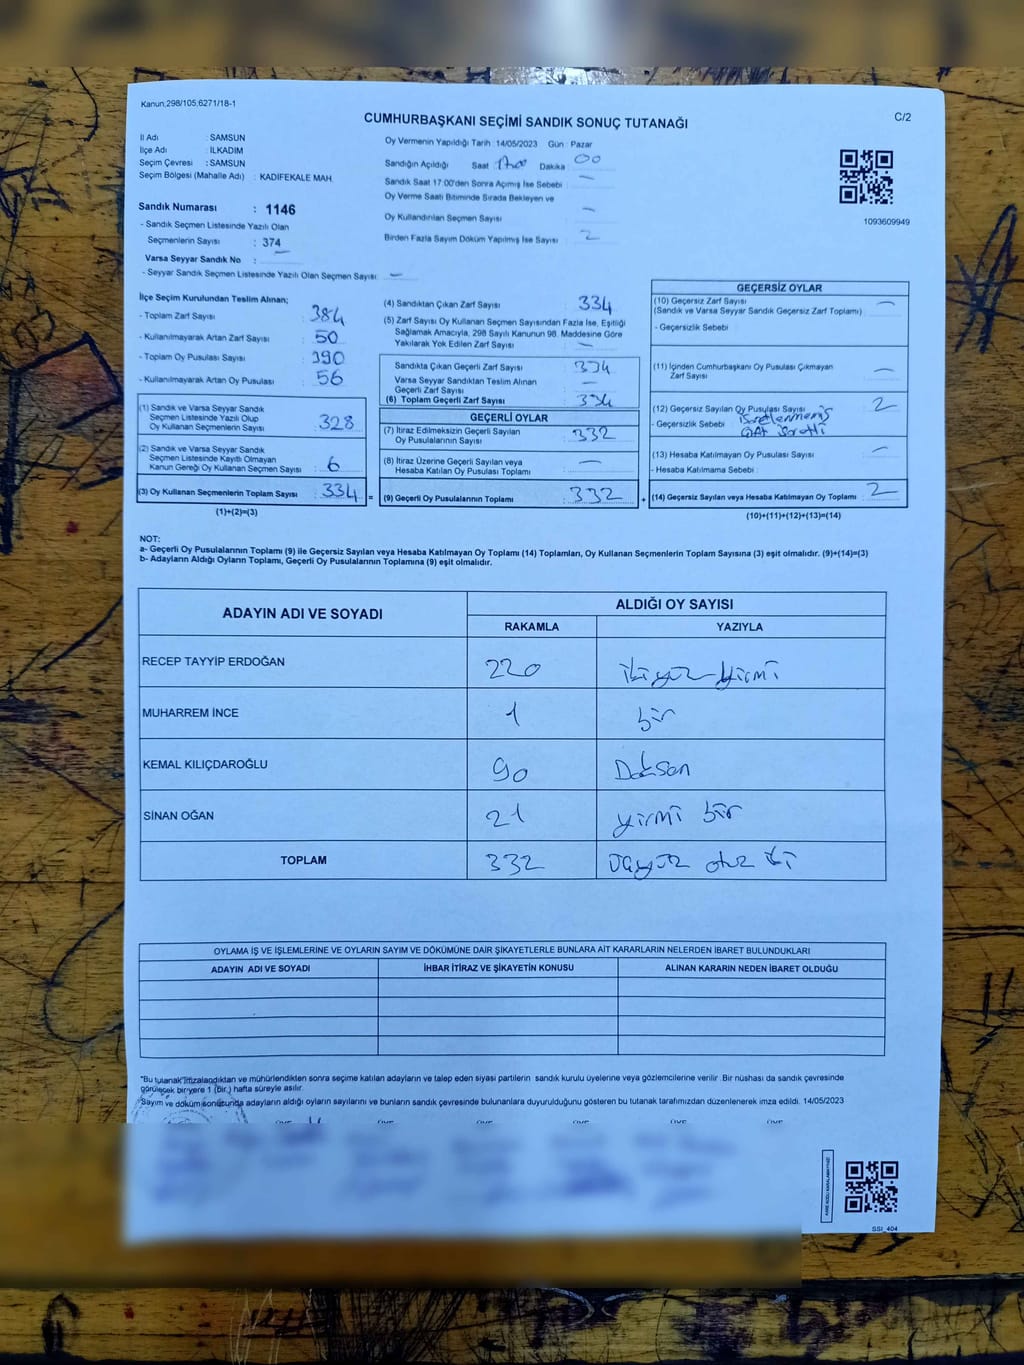 Kanun,298/105,6271/18-1
CUMHURBAŞKANI SEÇİMİ SANDIK SONUÇ TUTANAĞI
C/2
İl Adı : SAMSUN
İlçe Adı : İLKADIM
Seçim Çevresi : SAMSUN
Seçim Bölgesi (Mahalle Adı) : KADIFEKALE MAH.
Oy Vermenin Yapıldığı Tarih : 14/05/2023 Gün : Pazar
Sandığın Açıldığı Saat : 17:00 Dakika : 00
Sandık Saat 17:00'den Sonra Açımış İse Sebebi : —
Oy Verme Saati Bitiminde Sırada Bekleyen ve
Oy Kullandırılan Seçmen Sayısı : —
Birden Fazla Sayım Döküm Yapılmış İse Sayısı : 2
1093609949
Sandık Numarası : 1146
- Sandık Seçmen Listesinde Yazılı Olan
Seçmenlerin Sayısı : 374
Varsa Seyyar Sandık No :
- Seyyar Sandık Seçmen Listesinde Yazılı Olan Seçmen Sayısı : —
İlçe Seçim Kurulundan Teslim Alınan;
- Toplam Zarf Sayısı : 384
- Kullanılmayarak Artan Zarf Sayısı : 50
- Toplam Oy Pusulası Sayısı : 390
- Kullanılmayarak Artan Oy Pusulası : 56
(1) Sandık ve Varsa Seyyar Sandık
Seçmen Listesinde Yazılı Olup
Oy Kullanan Seçmenlerin Sayısı : 328
(2) Sandık ve Varsa Seyyar Sandık
Seçmen Listesinde Kayıtlı Olmayan
Kanun Gereği Oy Kullanan Seçmen Sayısı : 6
(3) Oy Kullanan Seçmenlerin Toplam Sayısı : 334 =
(1)+(2)=(3)
(4) Sandıktan Çıkan Zarf Sayısı : 334
(5) Zarf Sayısı Oy Kullanan Seçmen Sayısından Fazla İse, Eşitliği
Sağlamak Amacıyla, 298 Sayılı Kanunun 98. Maddesine Göre
Yakılarak Yok Edilen Zarf Sayısı : —
Sandıkta Çıkan Geçerli Zarf Sayısı : 334
Varsa Seyyar Sandıktan Teslim Alınan
Geçerli Zarf Sayısı : —
(6) Toplam Geçerli Zarf Sayısı : 334
GEÇERLİ OYLAR
(7) İtiraz Edilmeksizin Geçerli Sayılan
Oy Pusulalarının Sayısı : 332
(8) İtiraz Üzerine Geçerli Sayılan veya
Hesaba Katılan Oy Pusulası Toplamı : —
(9) Geçerli Oy Pusulalarının Toplamı : 332 +
GEÇERSİZ OYLAR
(10) Geçersiz Zarf Sayısı : —
(Sandık ve Varsa Seyyar Sandık Geçersiz Zarf Toplamı)
- Geçersizlik Sebebi :
(11) İçinden Cumhurbaşkanı Oy Pusulası Çıkmayan
Zarf Sayısı : —
(12) Geçersiz Sayılan Oy Pusulası Sayısı : 2
- Geçersizlik Sebebi : işaretlenmemiş
işaretli
(13) Hesaba Katılmayan Oy Pusulası Sayısı : —
- Hesaba Katılmama Sebebi :
(14) Geçersiz Sayılan veya Hesaba Katılmayan Oy Toplamı : 2
(10)+(11)+(12)+(13)=(14)
NOT:
a- Geçerli Oy Pusulalarının Toplamı (9) ile Geçersiz Sayılan veya Hesaba Katılmayan Oy Toplamı (14) Toplamları, Oy Kullanan Seçmenlerin Toplam Sayısına (3) eşit olmalıdır. (9)+(14)=(3)
b- Adayların Aldığı Oyların Toplamı, Geçerli Oy Pusulalarının Toplamına (9) eşit olmalıdır.
ADAYIN ADI VE SOYADI ALDIĞI OY SAYISI
RAKAMLA YAZIYLA
RECEP TAYYİP ERDOĞAN 220 ikiyüz yirmi
MUHARREM İNCE 1 bir
KEMAL KILIÇDAROĞLU 90 Doksan
SİNAN OĞAN 21 yirmi bir
TOPLAM 332 üçyüz otuz iki
OYLAMA İŞ VE İŞLEMLERİNE VE OYLARIN SAYIM VE DÖKÜMÜNE DAİR ŞİKAYETLERLE BUNLARA AİT KARARLARIN NELERDEN İBARET BULUNDUKLARI
ADAYIN ADI VE SOYADI İHBAR İTİRAZ VE ŞİKAYETİN KONUSU ALINAN KARARIN NEDEN İBARET OLDUĞU
"Bu tutanak" imzalandıktan ve mühürlendikten sonra seçime katılan adayların ve talep eden siyasi partilerin sandık kurulu üyelerine veya gözlemcilerine verilir. Bir nüshası da sandık çevresinde
görülecek bir yere 1 (bir) hafta süreyle asılır.
Sayım ve döküm sonucunda adayların aldığı oyların sayılarını ve bunların sandık çevresinde bulunanlara duyurulduğunu gösteren bu tutanak tarafımızdan düzenlenerek imza edildi. 14/05/2023
ÜYE ÜYE ÜYE ÜYE ÜYE
SSİ_404